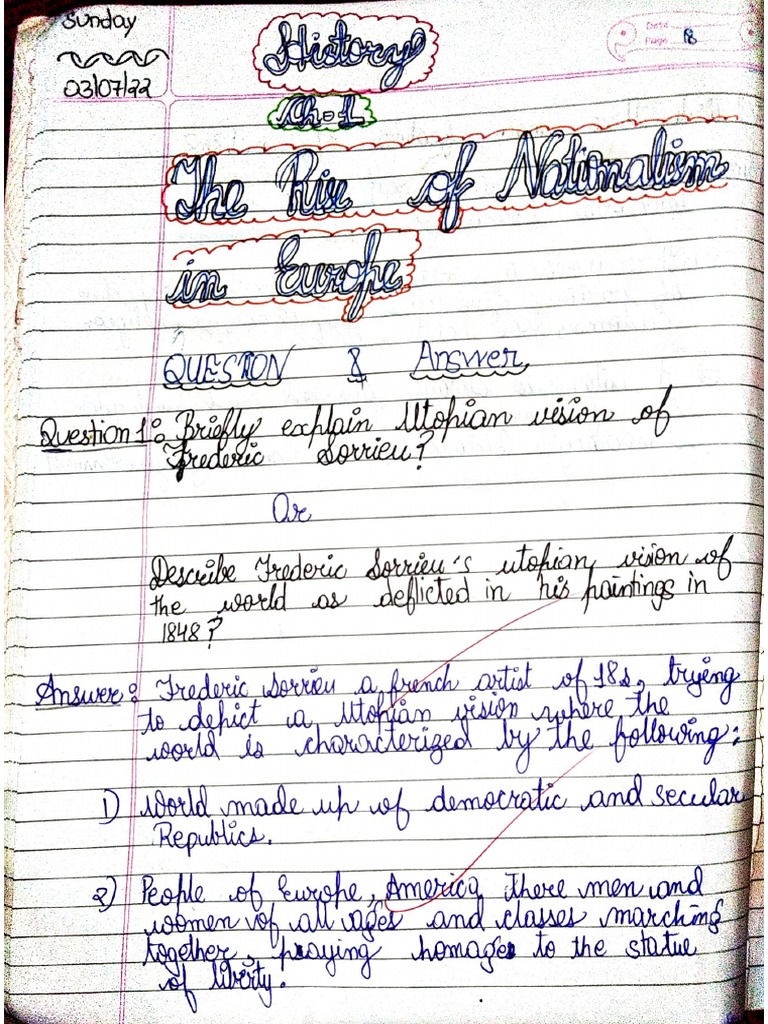 Sunday
03/07/22
Date
Page 18
History
Ch-1
The Rise of Nationalism
in Europe
QUESTION & Answer
Question 1: Briefly explain Utopian vision of
Frederic Sorrieu?
Or
Describe Frederic Sorrieu's utopian vision of
the world as deflicted in his paintings in
1848?
Answer: Frederic Sorrieu a french artist of 18s, tryeng
to depict a Utopian vision where the
world is characterized by the following:
1) World made up of democratic and secular
Republics.
2) People of Europe, America there men and
women of all ages and classes marching
together, praying homages to the statue
of liberty.